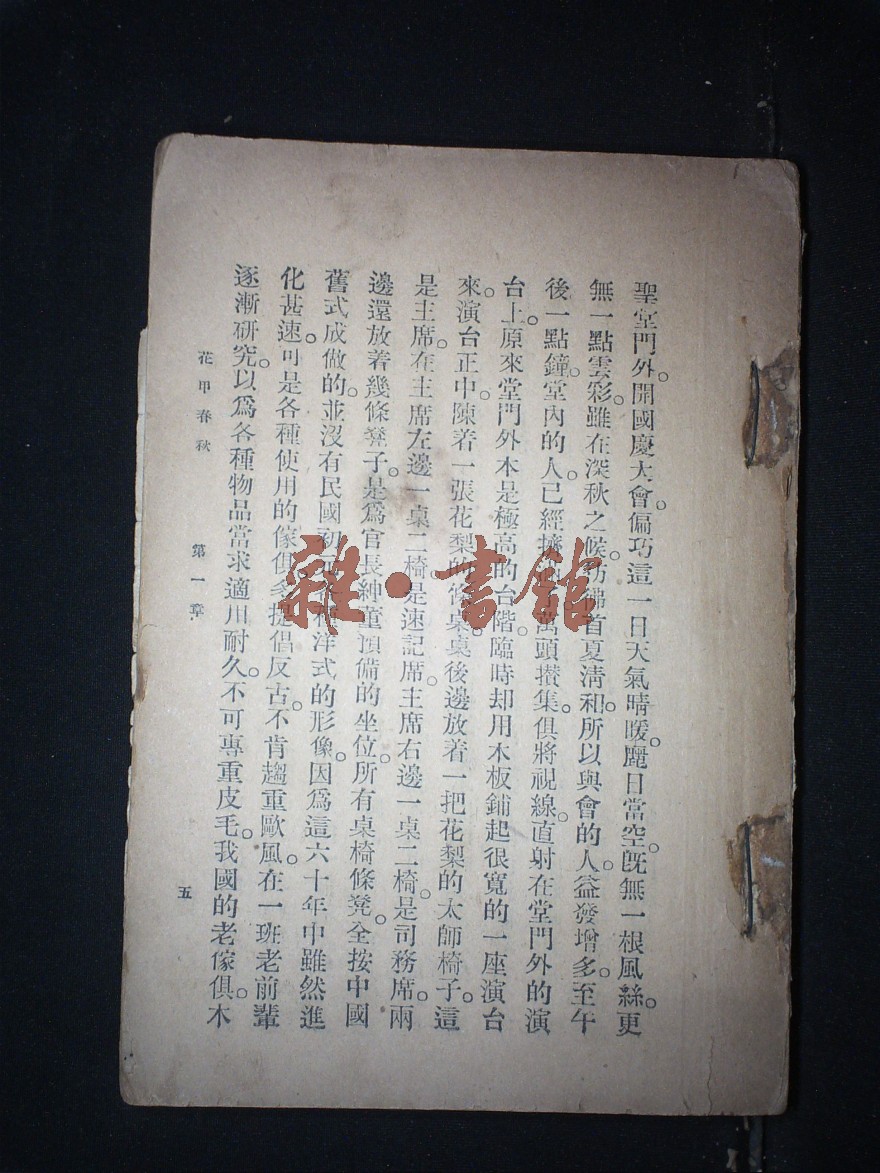 聖堂門外。開國慶大會。偏巧這一日天氣晴暖。麗日當空。旣無一根風絲。更
無一點雲彩。雖在深秋之候。彷彿首夏清和。所以與會的人。益發增多。至午
後一點鐘。堂內的人。已經擠 萬頭攢集。俱將視線。直射在堂門外的演
台上。原來堂門外本是極高的台階。臨時却用木板鋪起很寬的一座演台
來。演台正中。陳着一張花梨的 桌。桌後邊放着一把花梨的太師椅子。這
是主席。在主席左邊一桌二椅。是速記席。主席右邊一桌二椅。是司務席。兩
邊還放着幾條凳子。是爲官長紳董預備的坐位。所有桌椅條凳。全按中國
舊式成做的。並沒有民國初 洋式的形像。因爲這六十年中雖然進
化甚速。可是各種使用的傢俱。多提倡反古。不肯趨重歐風。在一班老前輩
逐漸研究。以爲各種物品當求適用耐久。不可專重皮毛。我國的老傢俱。木
花甲春秋 第一章 五
雜·書館